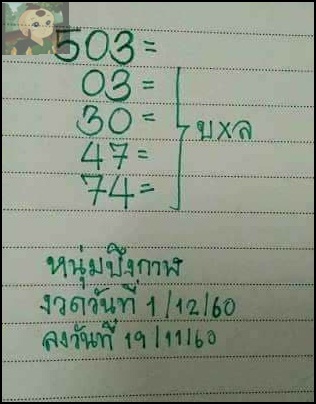 503=
03=
30=
47=
74=
บxล
หนุ่มบึงกาฬ
งวดวันที่ 1/12/60
ลงวันที่ 19/11/60